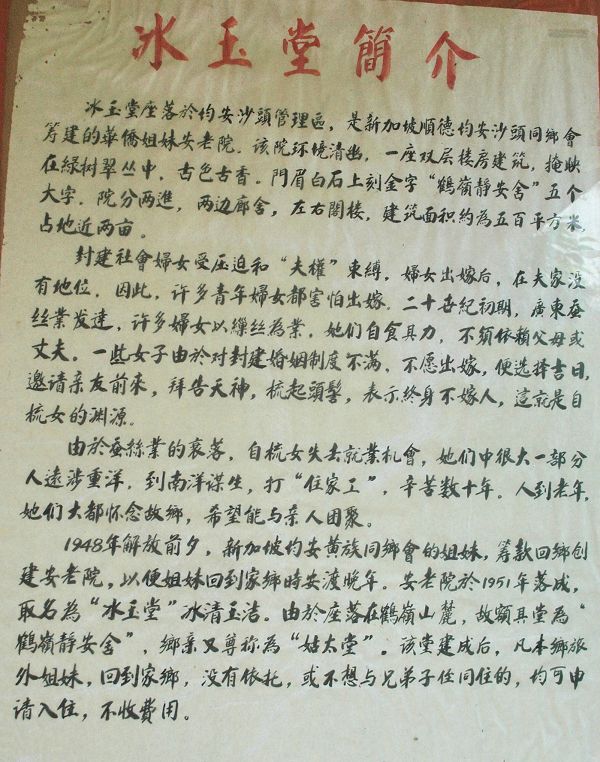 冰玉堂簡介
冰玉堂座落於均安沙頭管理區，是新加坡順德均安沙頭同鄉會
筹建的華僑姐妹安老院。该院环境清幽，一座双层楼房建筑，掩映
在綠树翠丛中，古色古香。門眉白石上刻金字“鶴嶺静安舍”五个
大字，院分两進，两边廊舍，左右閣楼，建筑面积約為五百平方米，
占地近两亩。
封建社會婦女受压迫和“夫權”束缚，婦女出嫁后，在夫家没
有地位，因此，许多青年婦女都害怕出嫁。二十世紀初期，廣東蚕
丝業发達，许多婦女以繅丝為業，她们自食其力，不須依賴父母或
丈夫。一些女子由於对封建婚姻制度不满，不愿出嫁，便选择吉日，
邀请亲友前來，拜告天神，梳起頭髻，表示終身不嫁人，這就是自
梳女的渊源。
由於蚕絲業的衰落，自梳女失去就業机會，她们中很大一部分
人遠涉重洋，到南洋谋生，打“住家工”，辛苦数十年。人到老年，
她们大都怀念故鄉，希望能与亲人团聚。
1948年解放前夕，新加坡均安黄族同鄉會的姐妹，筹款回鄉创
建安老院，以便姐妹回到家鄉時安渡晚年。安老院於1951年落成，
取名為“冰玉堂”冰清玉洁。由於座落在鶴嶺山麓，故額其堂為“
鶴嶺静安舍”，鄉亲又尊称為“姑太堂”。该堂建成后，凡本鄉旅
外姐妹，回到家鄉，没有依托，或不想与兄弟子侄同住的，均可申
请入住，不收费用。